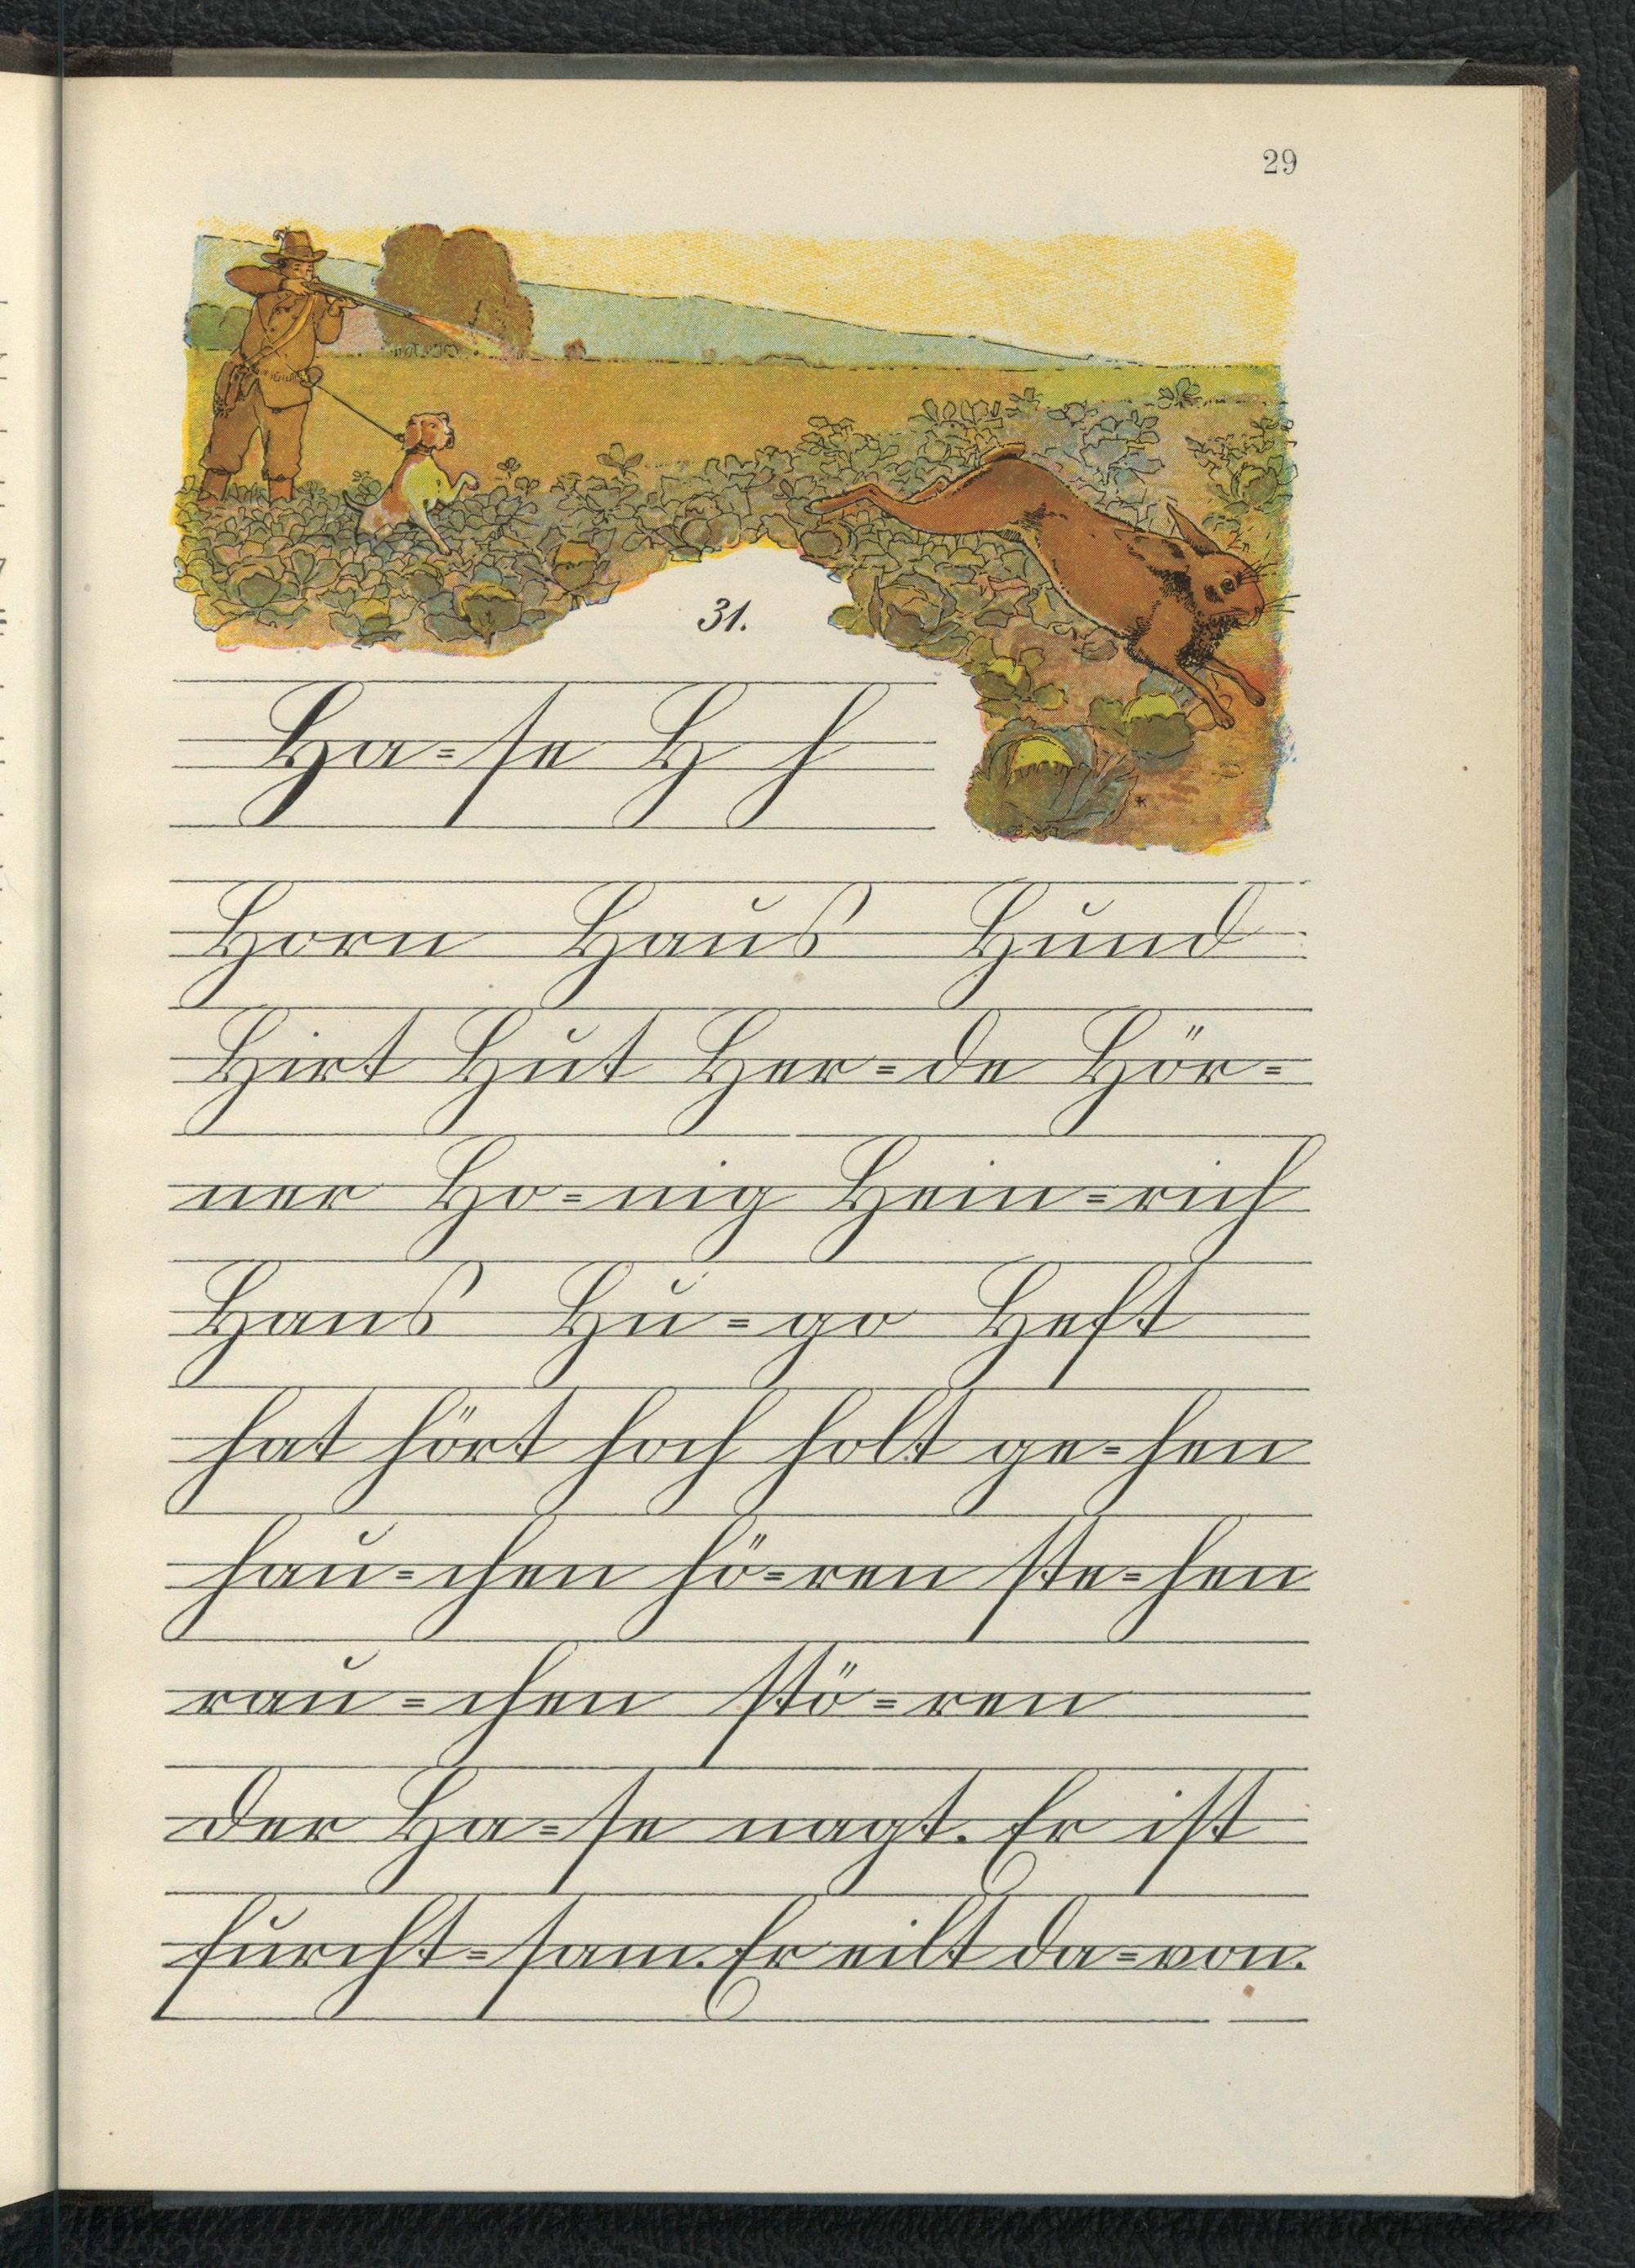 29
31.
Ha=se H h
Horn Haus Hund
Hirt Hut Her=de Hör=
ner Ho=nig Hein=rich
Hans Hu=go Heft
hat hört hoch holt ge=hen
hau=chen hö=ren ste=hen
rau=chen stö=ren
der Ha=se nagt. Er ist
furcht=sam. Er eilt da=von.